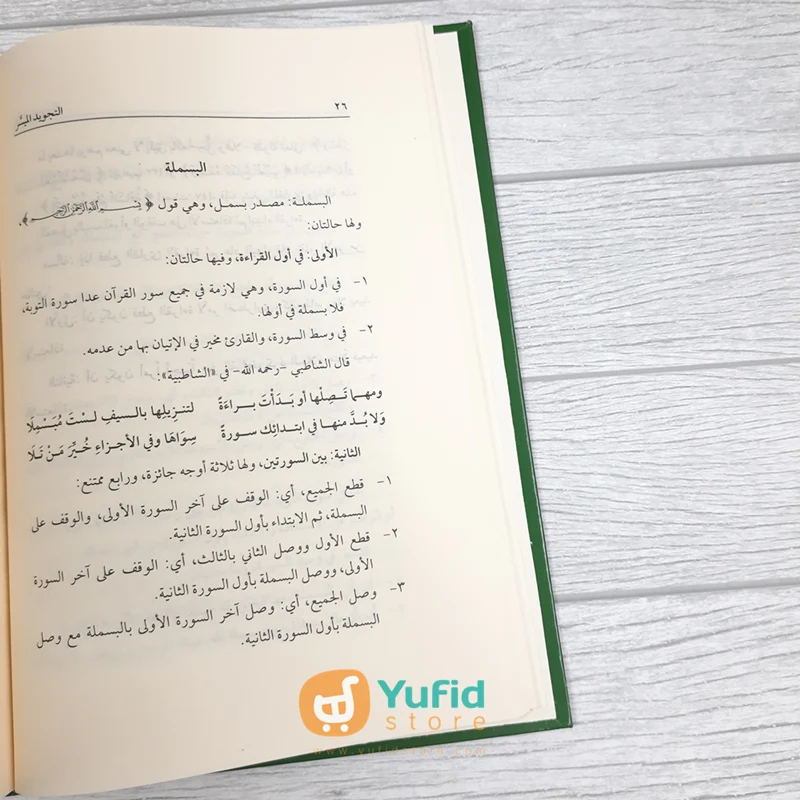 ٢٦ التجويد الميسَّر
البسملة
البسملة: مصدر بسمل، وهي قول ﴿بِسْمِ اللَّهِ الرَّحْمَٰنِ الرَّحِيمِ﴾.
ولها حالتان:
الأولى: في أول القراءة، وفيها حالتان:
١- في أول السورة، وهي لازمة في جميع سور القرآن عدا سورة التوبة،
فلا بسملة في أولها.
٢- في وسط السورة، والقارئ مخير في الإتيان بها من عدمه.
قال الشاطبي -رحمه الله- في «الشاطبية»:
ومهما تَصِلْها أو بَدَأْتَ بَراءَةً لتنزيلِها بالسيفِ لسْتَ مُبَسْمِلَا
وَلا بُدَّ منها في ابتدائِك سورةً سِوَاهَا وفي الأجزاءِ خُيِّرَ مَنْ تَلَا
الثانية: بين السورتين، ولها ثلاثة أوجه جائزة، ورابع ممتنع:
١- قطع الجميع، أي: الوقف على آخر السورة الأولى، والوقف على
البسملة، ثم الابتداء بأول السورة الثانية.
٢- قطع الأول ووصل الثاني بالثالث، أي: الوقف على آخر السورة
الأولى، ووصل البسملة بأول السورة الثانية.
٣- وصل الجميع، أي: وصل آخر السورة الأولى بالبسملة مع وصل
البسملة بأول السورة الثانية.
Yufid
store
www.yufidstore.com